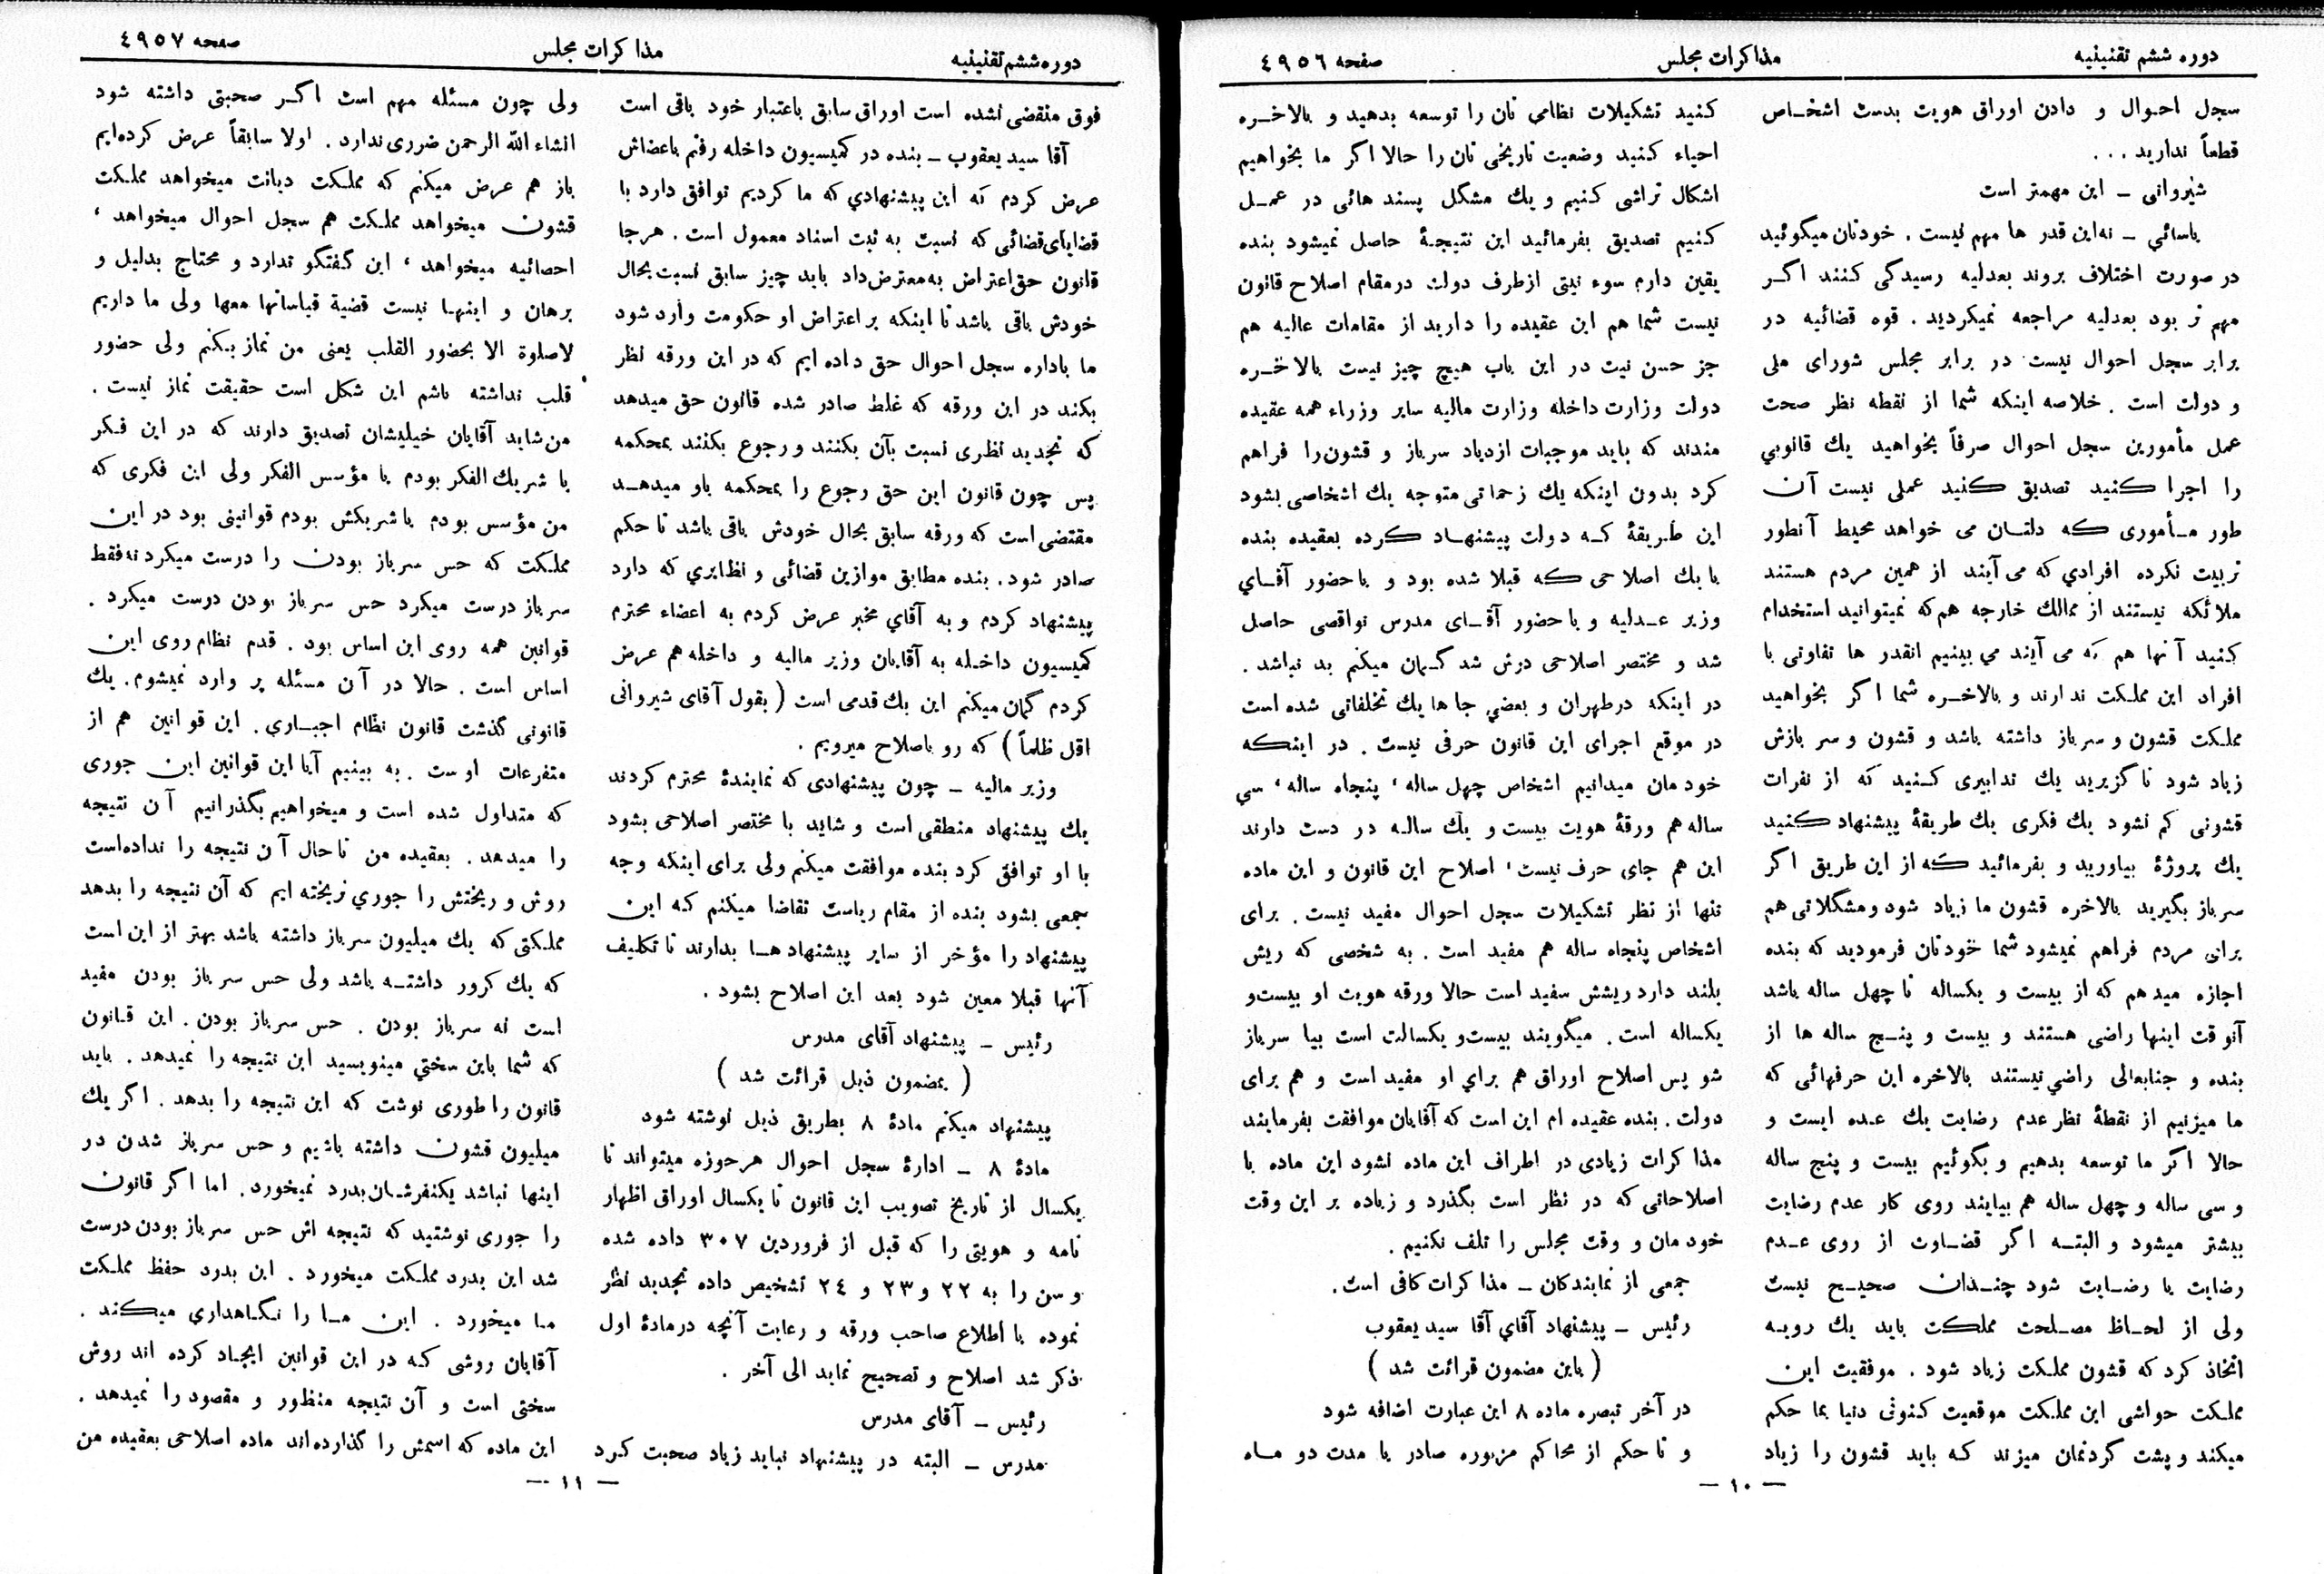 دوره ششم تقنینیه
مذاکرات مجلس
صفحه ٤٩٥٦
سجل احوال و دادن اوراق هویت بدست اشخاص
قطعاً ندارید . . .
شیروانی ــ این مهمتر است
یاسائی ــ نه‌این قدر ها مهم نیست . خودتان میگوئید
در صورت اختلاف بروند بعدلیه رسیدگی کنند اگر
مهم تر بود بعدلیه مراجعه نمیکردید . قوه قضائیه در
برابر سجل احوال نیست در برابر مجلس شورای ملی
و دولت است . خلاصه اینکه شما از نقطه نظر صحت
عمل مأمورین سجل احوال صرفاً بخواهید یك قانونی
را اجرا کنید تصدیق کنید عملی نیست آن
طور مأموری که دلتان می خواهد محیط آنطور
تربیت نکرده افرادی که می آیند از همین مردم هستند
ملائکه نیستند از ممالك خارجه هم‌که نمیتوانید استخدام
کنید آنها هم که می آیند می بینیم انقدر ها تفاوتی با
افراد این مملکت ندارند و بالاخره شما اگر بخواهید
مملکت قشون و سرباز داشته باشد و قشون و سربازش
زیاد شود ناگزیرید یك تدابیری کنید که از نفرات
قشونی کم نشود یك فکری یك طریقهٔ پیشنهاد کنید
یك پروژهٔ بیاورید و بفرمائید که از این طریق اگر
سرباز بگیرید بالاخره قشون ما زیاد شود و مشگلاتی هم
برای مردم فراهم نمیشود شما خودتان فرمودید که بنده
اجازه میدهم که از بیست و یکساله تا چهل ساله باشد
آنوقت اینها راضی هستند و بیست و پنج ساله ها از
بنده و جنابعالی راضی نیستند بالاخره این حرفهائی که
ما میزنیم از نقطهٔ نظر عدم رضایت یك عده ایست و
حالا اگر ما توسعه بدهیم و بگوئیم بیست و پنج ساله
و سی ساله و چهل ساله هم بیایند روی کار عدم رضایت
بیشتر میشود و البته اگر قضاوت از روی عدم
رضایت یا رضایت شود چندان صحیح نیست
ولی از لحاظ مصلحت مملکت باید یك رویه
اتخاذ کرد که قشون مملکت زیاد شود . موفقیت این
مملکت حواشی این مملکت موقعیت کنونی دنیا بما حکم
میکند و پشت گردنمان میزند که باید قشون را زیاد
کنید تشکیلات نظامی تان را توسعه بدهید و بالاخره
احیاء کنید وضعیت تاریخی تان را حالا اگر ما بخواهیم
اشکال تراشی کنیم و یك مشگل پسند هائی در عمل
کنیم تصدیق بفرمائید این نتیجهٔ حاصل نمیشود بنده
یقین دارم سوء نیتی از طرف دولت در مقام اصلاح قانون
نیست شما هم این عقیده را دارید از مقامات عالیه هم
جز حسن نیت در این باب هیچ چیز نیست بالاخره
دولت وزارت داخله وزارت مالیه سایر وزراء همه عقیده
مندند که باید موجبات ازدیاد سرباز و قشون‌را فراهم
کرد بدون اینکه یك زحماتی متوجه یك اشخاصی بشود
این طریقهٔ که دولت پیشنهاد کرده بعقیده بنده
با یك اصلاحی که قبلا شده بود و باحضور آقای
وزیر عدلیه و با حضور آقای مدرس توافقی حاصل
شد و مختصر اصلاحی درش شد گمان میکنم بد نباشد .
در اینکه در طهران و بعضی جاها یك تخلفاتی شده است
در موقع اجرای این قانون حرفی نیست . در اینکه
خودمان میدانیم اشخاص چهل ساله، پنجاه ساله، سی
ساله هم ورقهٔ هویت بیست و یك ساله در دست دارند
این هم جای حرف نیست، اصلاح این قانون و این ماده
تنها از نظر تشکیلات سجل احوال مفید نیست . برای
اشخاص پنجاه ساله هم مفید است . به شخصی که ریش
بلند دارد ریشش سفید است حالا ورقه هویت او بیست‌و
یکساله است . میگویند بیست‌و یکسالت است بیا سرباز
شو پس اصلاح اوراق هم برای او مفید است و هم برای
دولت . بنده عقیده ام این است که آقایان موافقت بفرمایند
مذاکرات زیادی در اطراف این ماده نشود این ماده با
اصلاحاتی که در نظر است بگذرد و زیاده بر این وقت
خودمان و وقت مجلس را تلف نکنیم .
جمعی از نمایندگان ــ مذاکرات کافی است.
رئیس ــ پیشنهاد آقای آقا سید یعقوب
( باین مضمون قرائت شد )
در آخر تبصره ماده ٨ این عبارت اضافه شود
و تا حکم از محاکم مزبوره صادر یا مدت دو ماه
— ١٠ —
دوره ششم تقنینیه
مذاکرات مجلس
صفحه ٤٩٥٧
فوق منقضی نشده است اوراق سابق باعتبار خود باقی است
آقا سید یعقوب ــ بنده در کمیسیون داخله رفتم باعضاش
عرض کردم که این پیشنهادی که ما کردیم توافق دارد با
قضایای قضائی که نسبت به ثبت اسناد معمول است . هرجا
قانون حق‌اعتراض به‌معترض‌داد باید چیز سابق نسبت بحال
خودش باقی باشد تا اینکه بر اعتراض او حکومت وارد شود
ما باداره سجل احوال حق داده ایم که در این ورقه نظر
بکند در این ورقه که غلط صادر شده قانون حق میدهد
که تجدید نظری نسبت بآن بکنند و رجوع بکنند بمحکمه
پس چون قانون این حق رجوع را بمحکمه باو میدهد
مقتضی است که ورقه سابق بحال خودش باقی باشد تا حکم
صادر شود . بنده مطابق موازین قضائی و نظایری که دارد
پیشنهاد کردم و به آقای مخبر عرض کردم به اعضاء محترم
کمیسیون داخله به آقایان وزیر مالیه و داخله هم عرض
کردم گمان میکنم این یك قدمی است ( بقول آقای شیروانی
اقل ظلماً ) که رو باصلاح میرویم .
وزیر مالیه ــ چون پیشنهادی که نمایندهٔ محترم کردند
یك پیشنهاد منطقی است و شاید با مختصر اصلاحی بشود
با او توافق کرد بنده موافقت میکنم ولی برای اینکه وجه
جمعی بشود بنده از مقام ریاست تقاضا میکنم که این
پیشنهاد را مؤخر از سایر پیشنهاد ها بدارند تا تکلیف
آنها قبلا معین شود بعد این اصلاح بشود .
رئیس ــ پیشنهاد آقای مدرس
( بمضمون ذیل قرائت شد )
پیشنهاد میکنم مادهٔ ٨ بطریق ذیل نوشته شود
مادهٔ ٨ ــ ادارهٔ سجل احوال هرحوزه میتواند تا
یکسال از تاریخ تصویب این قانون تا یکسال اوراق اظهار
نامه و هویتی را که قبل از فروردین ٣٠٧ داده شده
و سن را به ٢٢ و ٢٣ و ٢٤ تشخیص داده تجدید نظر
نموده با اطلاع صاحب ورقه و رعایت آنچه در مادهٔ اول
ذکر شد اصلاح و تصحیح نماید الی آخر .
رئیس ــ آقای مدرس
مدرس ــ البته در پیشنهاد نباید زیاد صحبت کرد
ولی چون مسئله مهم است اگر صحبتی داشته شود
انشاء الله الرحمن ضرری ندارد . اولا سابقاً عرض کرده‌ایم
باز هم عرض میکنم که مملکت دیانت میخواهد مملکت
قشون میخواهد مملکت هم سجل احوال میخواهد ،
احصائیه میخواهد ، این گفتگو ندارد و محتاج بدلیل و
برهان و اینها نیست قضیة قیاساتها معها ولی ما داریم
لاصلوة الا بحضور القلب یعنی من نماز بکنم ولی حضور
قلب نداشته باشم این شکل است حقیقت نماز نیست .
من‌شاید آقایان خیلیشان تصدیق دارند که در این فکر
با شریك الفکر بودم یا مؤسس الفکر ولی این فکری که
من مؤسس بودم یا شریکش بودم قوانینی بود در این
مملکت که حس سرباز بودن را درست میکرد نه‌فقط
سرباز درست میکرد حس سرباز بودن درست میکرد .
قوانین همه روی این اساس بود . قدم نظام روی این
اساس است . حالا در آن مسئله پر وارد نمیشوم . یك
قانونی گذشت قانون نظام اجباری . این قوانین هم از
متفرعات اوست . به بینیم آیا این قوانین این جوری
که متداول شده است و میخواهیم بگذرانیم آن نتیجه
را میدهد . بعقیده من تا حال آن نتیجه را نداده‌است
روش و ریختش را جوری نریخته ایم که آن نتیجه را بدهد
مملکتی که یك میلیون سرباز داشته باشد بهتر از این است
که یك کرور داشته باشد ولی حس سرباز بودن مفید
است نه سرباز بودن . حس سرباز بودن . این قانون
که شما باین سختی مینویسید این نتیجه را نمیدهد . باید
قانون را طوری نوشت که این نتیجه را بدهد . اگر یك
میلیون قشون داشته باشیم و حس سرباز شدن در
اینها نباشد یکنفرشان بدرد نمیخورد . اما اگر قانون
را جوری نوشتید که نتیجه اش حس سرباز بودن درست
شد این بدرد مملکت میخورد . این بدرد حفظ مملکت
ما میخورد . این ما را نگاهداری میکند .
آقایان روشی که در این قوانین ایجاد کرده اند روش
سختی است و آن نتیجه منظور و مقصود را نمیدهد .
این ماده که اسمش را گذارده‌اند ماده اصلاحی بعقیده من
— ١١ —